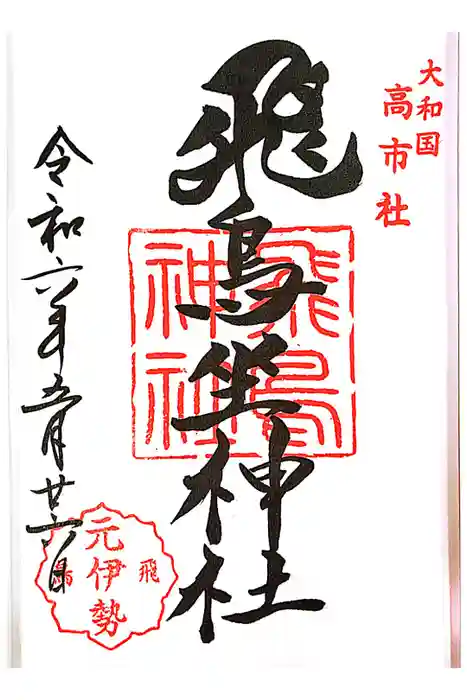 大和国
高市社
飛鳥坐神社
飛鳥
神社
令和六年五月廿六日
飛鳥
元伊勢